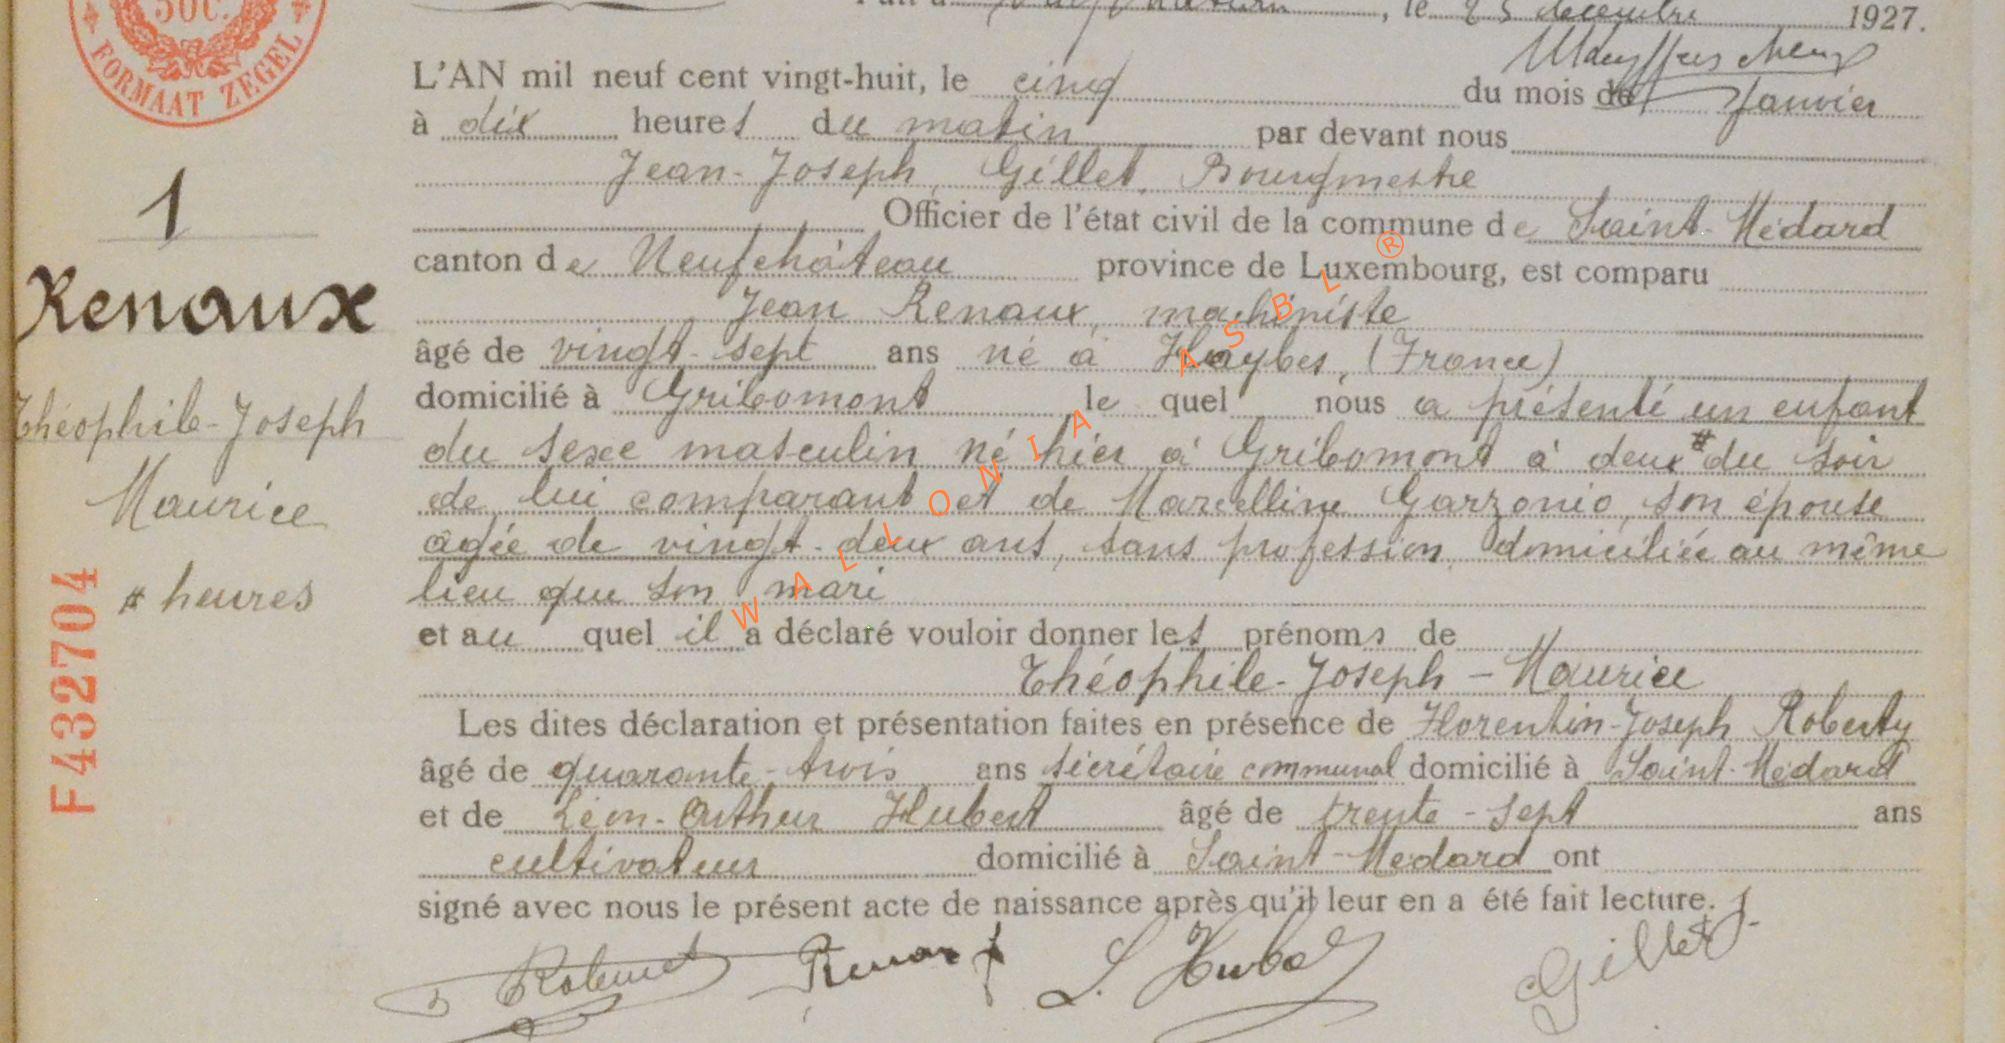 50C.
FORMAAT ZEGEL
, le 23 décembre 1927.
L'AN mil neuf cent vingt-huit, le cinq du mois de Janvier
à dix heures du matin par devant nous
Jean-Joseph, Gillet, Bourgmestre
1
Officier de l'état civil de la commune de Saint-Médard
canton de Neufchâteau province de Luxembourg, est comparu
Renaux
Jean Renaux, machiniste
âgé de vingt-sept ans né à Haybes, (France)
domicilié à Gribomont le quel nous a présenté un enfant
Théophile-Joseph
du sexe masculin né hier à Gribomont à deux # du soir
Maurice
de lui comparant et de Marcelline Garzonio, son épouse
âgée de vingt-deux ans, sans profession, domiciliée au même
# heures
lieu que son mari
et au quel il a déclaré vouloir donner les prénoms de
Théophile-Joseph-Maurice
F432704
Les dites déclaration et présentation faites en présence de Florentin-Joseph Roberty
âgé de quarante-trois ans sécrétaire communal domicilié à Saint-Médard
et de Léon-Arthur Hubert âgé de trente-sept ans
cultivateur domicilié à Saint-Médard ont
signé avec nous le présent acte de naissance après qu'il leur en a été fait lecture.
Renaux L. Hubert Gillet J.
WALLONIA ASBL ®